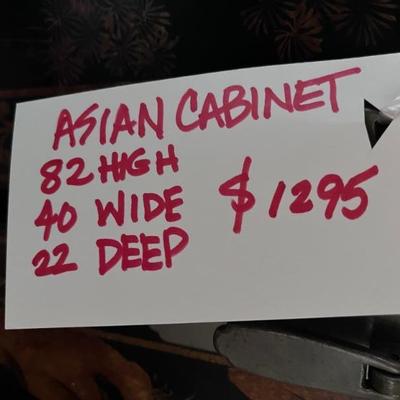 ASIAN CABINET
82 HIGH
40 WIDE $1295
22 DEEP